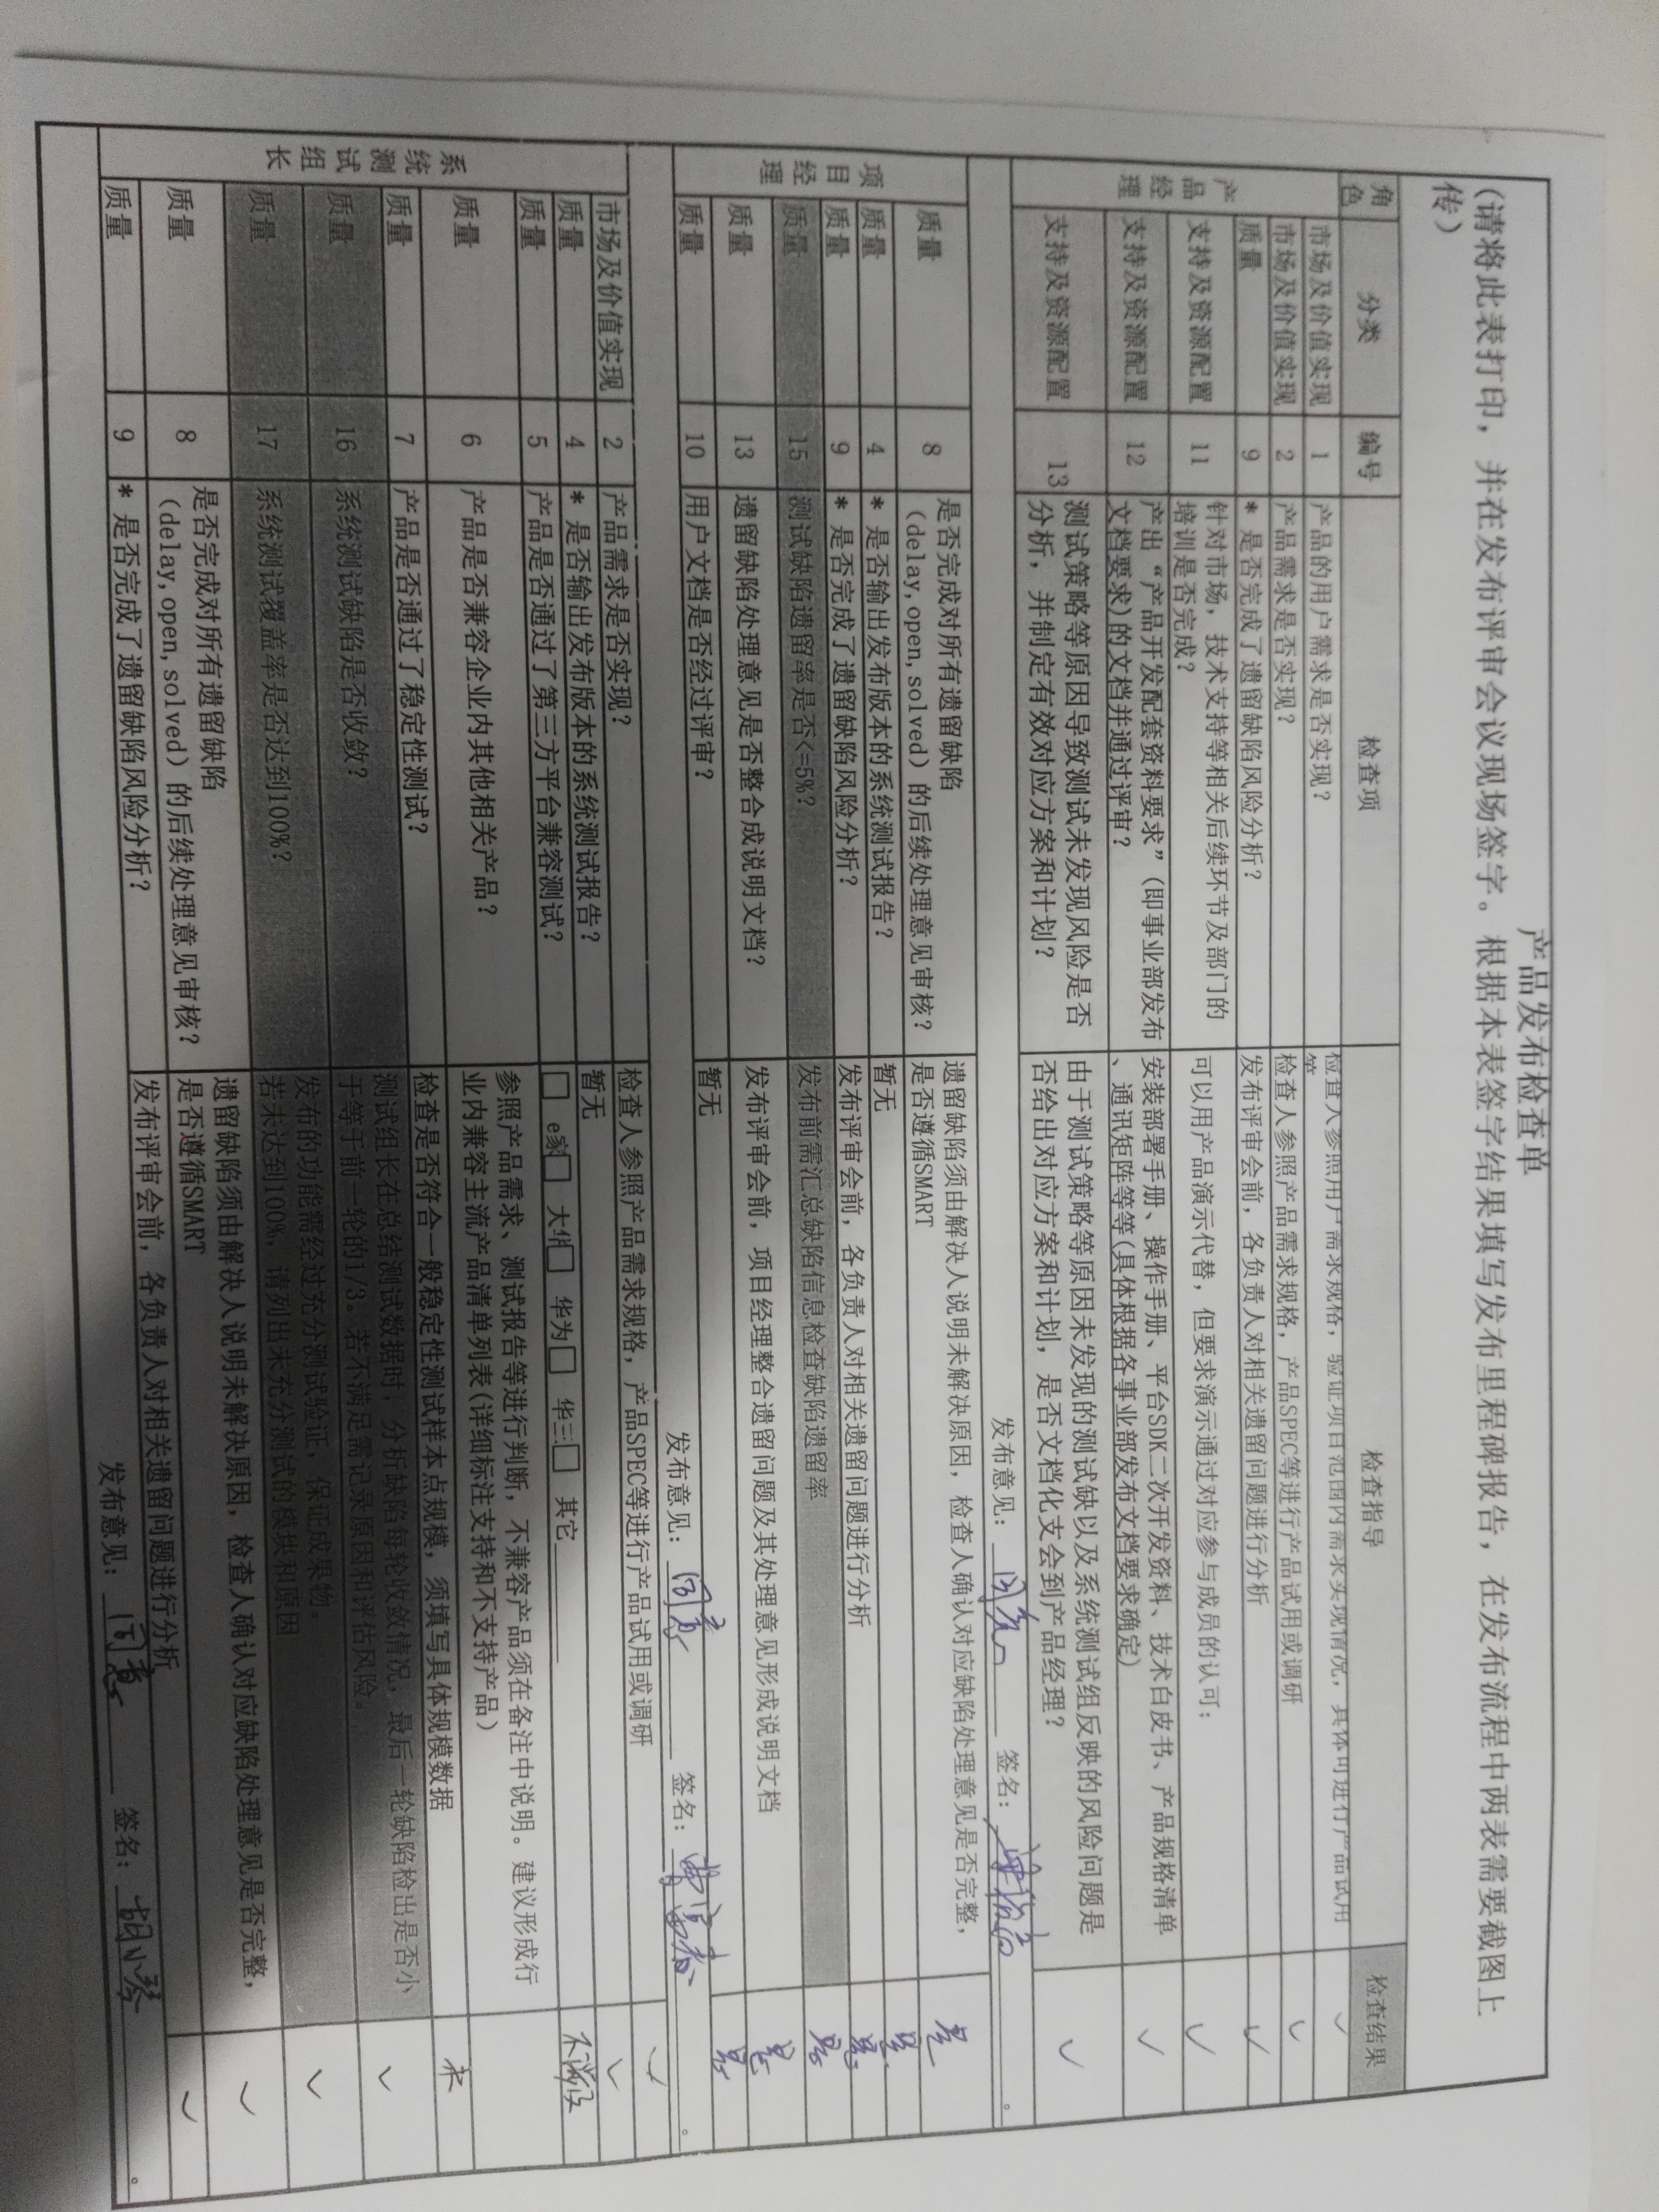 产品发布检查单
(请将此表打印，并在发布评审会议现场签字。根据本表签字结果填写发布里程碑报告，在发布流程中两表需要截图上
传)
角色 分类 编号 检查项 检查指导 检查结果
产品经理
市场及价值实现 1 产品的用户需求是否实现? 检查人参照用户需求规格，验证项目范围内需求实现情况，具体可进行产品试用
等 ✓
市场及价值实现 2 产品需求是否实现? 检查人参照产品需求规格，产品SPEC等进行产品试用或调研 ✓
质量 9 * 是否完成了遗留缺陷风险分析? 发布评审会前，各负责人对相关遗留问题进行分析 ✓
支持及资源配置 11 针对市场，技术支持等相关后续环节及部门的
培训是否完成? 可以用产品演示代替，但要求演示通过对应参与成员的认可; ✓
支持及资源配置 12 产出“产品开发配套资料要求”(即事业部发布
文档要求)的文档并通过评审? 安装部署手册、操作手册、平台SDK二次开发资料、技术白皮书、产品规格清单
、通讯矩阵等等(具体根据各事业部发布文档要求确定) ✓
支持及资源配置 13 测试策略等原因导致测试未发现风险是否
分析，并制定有效对应方案和计划? 由于测试策略等原因未发现的测试缺以及系统测试组反映的风险问题是
否给出对应方案和计划，是否文档化支会到产品经理? ✓
发布意见: 同意 签名: 。
项目经理
质量 8 是否完成对所有遗留缺陷
(delay,open,solved)的后续处理意见审核? 遗留缺陷须由解决人说明未解决原因，检查人确认对应缺陷处理意见是否完整，
是否遵循SMART 是
质量 4 * 是否输出发布版本的系统测试报告? 暂无 是
质量 9 * 是否完成了遗留缺陷风险分析? 发布评审会前，各负责人对相关遗留问题进行分析 是
质量 15 测试缺陷遗留率是否<=5%? 发布前需汇总缺陷信息检查缺陷遗留率 是
质量 13 遗留缺陷处理意见是否整合成说明文档? 发布评审会前，项目经理整合遗留问题及其处理意见形成说明文档 是
质量 10 用户文档是否经过评审? 暂无 是
发布意见: 同意 签名: 。
系统测试组长
市场及价值实现 2 产品需求是否实现? 检查人参照产品需求规格，产品SPEC等进行产品试用或调研 ✓
质量 4 * 是否输出发布版本的系统测试报告? 暂无 ✓
质量 5 产品是否通过了第三方平台兼容测试? □ e家□ 大华□ 华为□ 华三□ 其它 不涉及
质量 6 产品是否兼容企业内其他相关产品? 参照产品需求、测试报告等进行判断，不兼容产品须在备注中说明。建议形成行
业内兼容主流产品清单列表(详细标注支持和不支持产品)
质量 7 产品是否通过了稳定性测试? 检查是否符合一般稳定性测试样本点规模，须填写具体规模数据 未
质量 16 系统测试缺陷是否收敛? 测试组长在总结测试数据时，分析缺陷每轮收敛情况，最后一轮缺陷检出是否小
于等于前一轮的1/3。若不满足需记录原因和评估风险。 ✓
质量 17 系统测试覆盖率是否达到100%? 发布的功能需经过充分测试验证，保证成果物。
若未达到100%，请列出未充分测试的模块和原因 ✓
质量 8 是否完成对所有遗留缺陷
(delay,open,solved)的后续处理意见审核? 遗留缺陷须由解决人说明未解决原因，检查人确认对应缺陷处理意见是否完整，
是否遵循SMART ✓
质量 9 * 是否完成了遗留缺陷风险分析? 发布评审会前，各负责人对相关遗留问题进行分析 ✓
发布意见: 同意 签名: 胡小琴 。